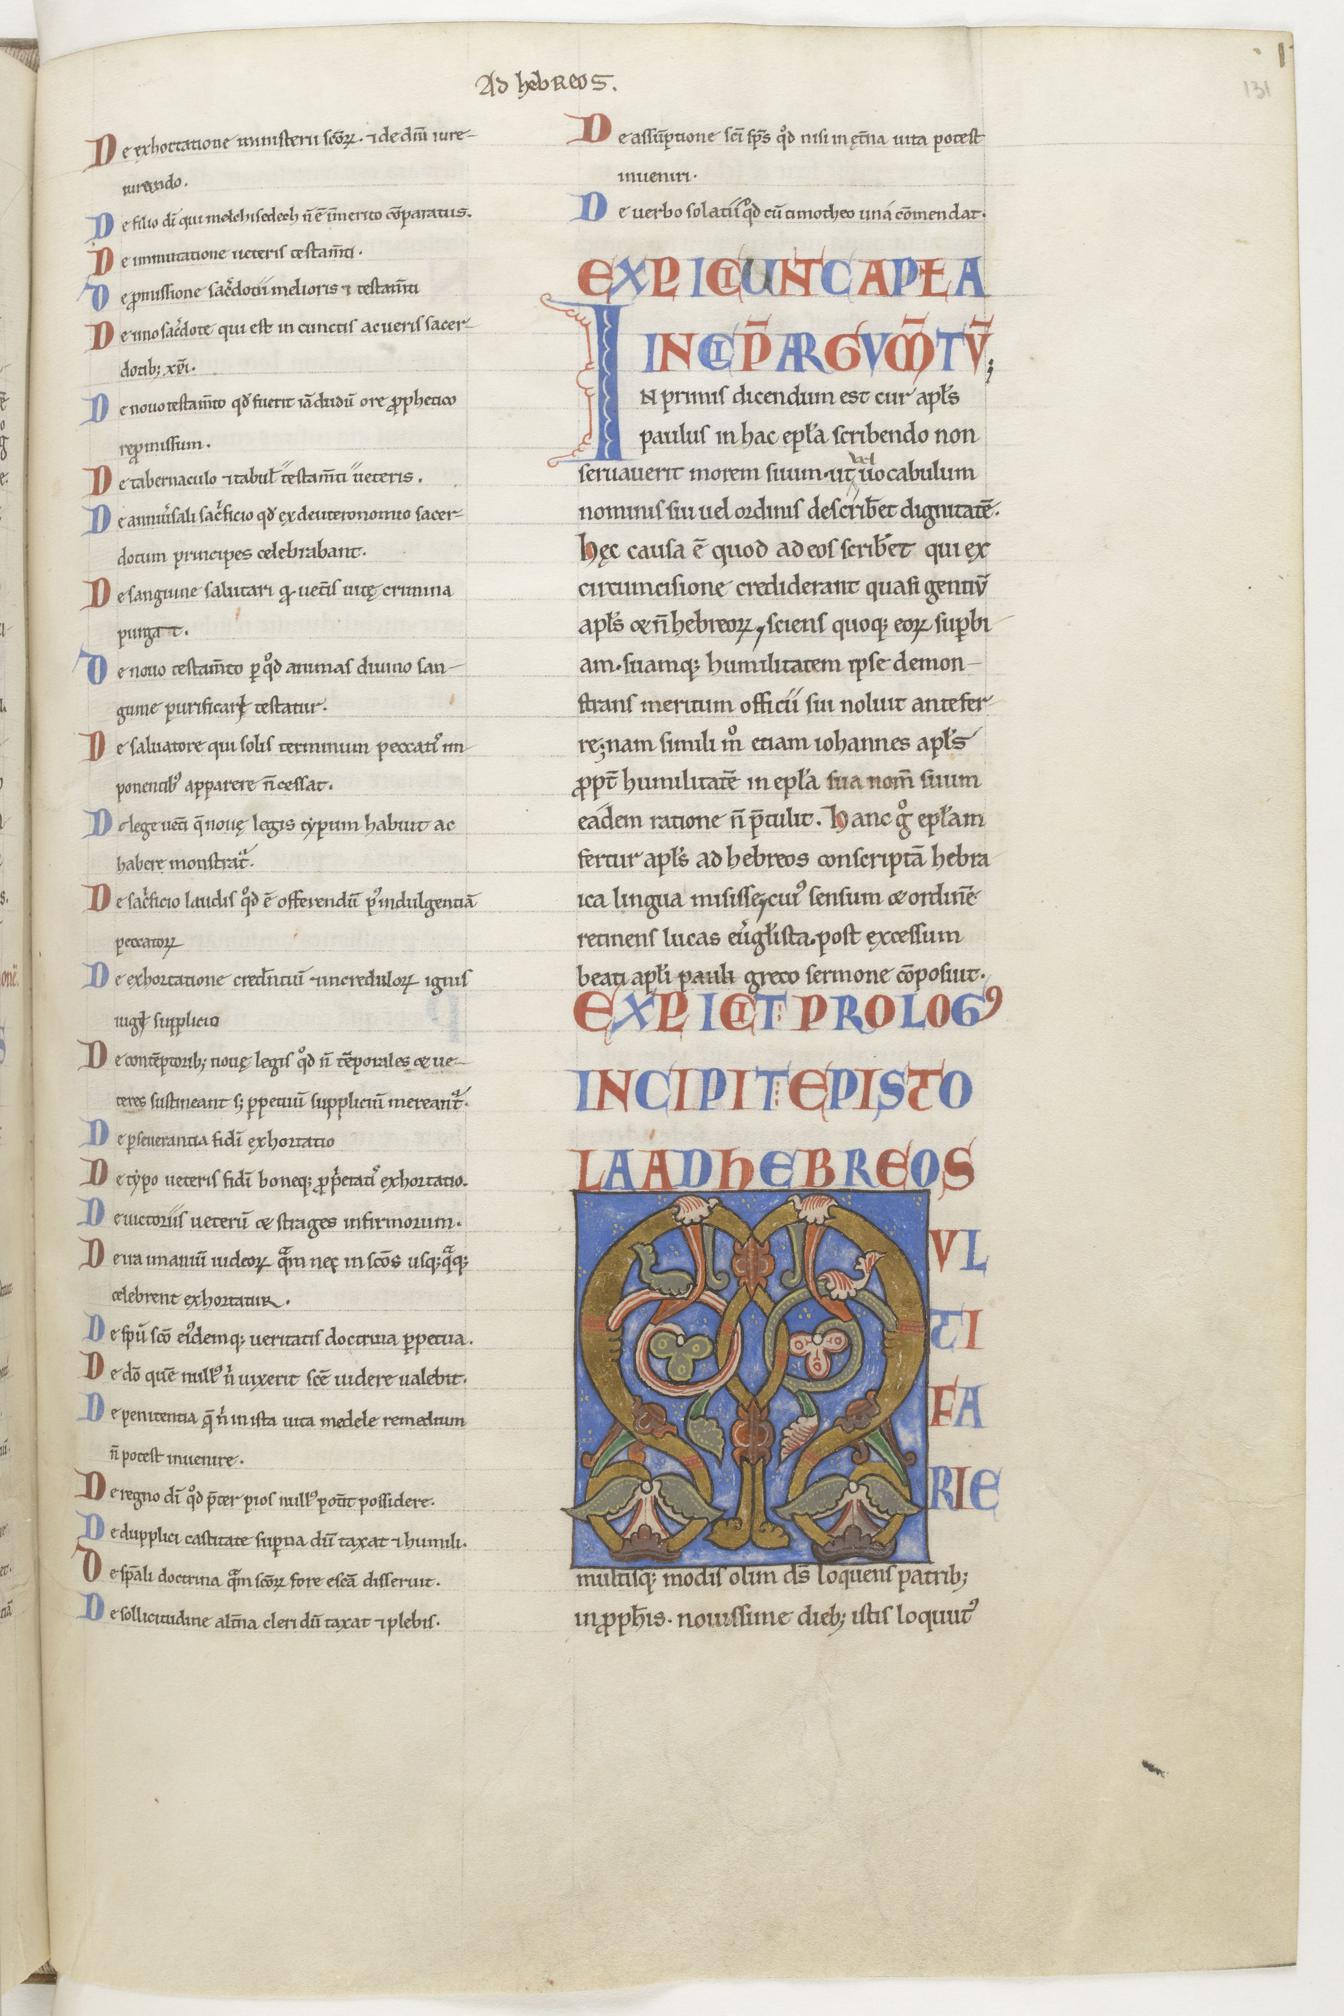 Ad hebReos.
131
De exhortatione ministerii sc̄oꝝ. ⁊ de dīu iure-
iurando.
De filio dī qui melchisedech n̄ ē īmerito cōparatus.
De inmutatione ueteris testam̄ti.
De ꝓmissione sac̄dotii melioris ⁊ testam̄ti
De uno sac̄dote qui est in cunctis ac ueris sacer-
dotib; xp̄i.
De nouo testam̄to qd̄ fuerit iā dudū ore ꝓphetico
repmissum.
De tabernaculo ⁊ tabul̄ testam̄ti ueteris.
De anniu̓sali sac̓ficio qd̄ ex deuteronomio sacer-
dotum principes celebrabant.
De sanguine salutari
purgat.
De nouo testam̄to ꝑ qd̄ animas diuino san-
guine purificari testatur.
De saluatore qui solis terminum peccati᷒ im-
ponentib᷒ apparere n̄ cessat.
De lege uet̓i q̄ nouę legis typum habuit ac
habere monstrat᷑.
De sac̓ficio laudis qd̄ ē offerendū ꝑ indulgentiā
peccatoꝝ
De exhortatione credentiū ⁊ incredulorꝝ ignis
iugi supplicio
De contēptorib; nouę legis qd̄ n̄ tēporales ⁊ ue-
teres sustineant s; ꝑpetuū suppliciū mereant᷑.
De ꝑseuerantia fidī exhortatio
De typo ueteris fidī boneq; exhortatio.
De uictoriis ueterū ⁊ strages infirmorum.
De iudeoꝝ in sc̄os usq;
celebrent exhortatuR.
De sp̄u sc̄o eidemq; ueritatis doctrina ꝑpetua.
De dō quē null᷒ n̓ uixerit sc̄e uidere ualebit.
De penitentia q̄ n̓ in ista uita medele remedium
n̄ potest inuenire.
De regno dī qd̄ p̄ter pios null᷒ pot̓it possidere.
De dupplici castitate suꝑna dū taxat ⁊ humili.
De sp̄ali doctrina q̄m sc̄oꝝ fore escā disseruit.
De sollicitudine alt̓na cleri dū taxat ⁊ plebis.
De assūptione sc̄i sp̄s qd̄ nisi in ęt̓na uita potest
inueniri.
De uerbo solatii qd̄ cū timotheo una cōmendat.
EXPLICIUNT CAPŁA
INCIP̄ ARGVM̄TV̄;
IN primis dicendum est cur apl̄s
paulus in hac epl̄a scribendo non
seruauerit morem suum. ut uel uocabulum
nominis sui uel ordinis describ̓et dignitatē.
Hęc causa ē quod ad eos scrib̓et qui ex
circumcisione crediderant quasi gentiū
apl̄s ⁊ n̄ hebreoꝝ, sciens quoq; eoꝝ suꝑbi-
am. suamq; humilitatem ipse demon-
strans meritum officii sui noluit antefer-
re; nam simili m̊ etiam iohannes apl̄s
ꝓpt̄ humilitatē in epl̄a sua nom̄ suum
eadem ratione n̄ p̄tulit. Hanc g̊ epl̄am
fertur apl̄s ad hebreos conscriptā hebra
ica lingua misisse, cui᷒ sensum ⁊ ordinē
retinens lucas eu̓ gl̄ista. post excessum
beati apl̄i pauli greco sermone cōposuit.
EXPLICIT: PROLOGꝰ
INCIPIT: EPISTO
LA AD HEBREOS
MVL
TI
FA
RIE
multisq; modis olim ds̄ loquens patrib;
in ꝓph̄is. nouissime dieb; istis loquut᷒